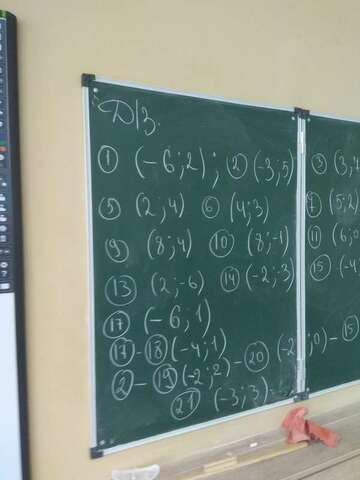 Д/З.
① (-6;2); ② (-3;5) ③ (3;7
⑤ (2;4) ⑥ (4;3) ⑦ (5;2)
⑨ (8;4) ⑩ (8;-1) ⑪ (6;0
⑬ (2;-6) ⑭ (-2;-3) ⑮ (-4
⑰ (-6;1)
⑰-⑱ (-4;1)
2-⑲ (-2;2)-⑳ (-2;0)-⑮
㉑ (-3;3)